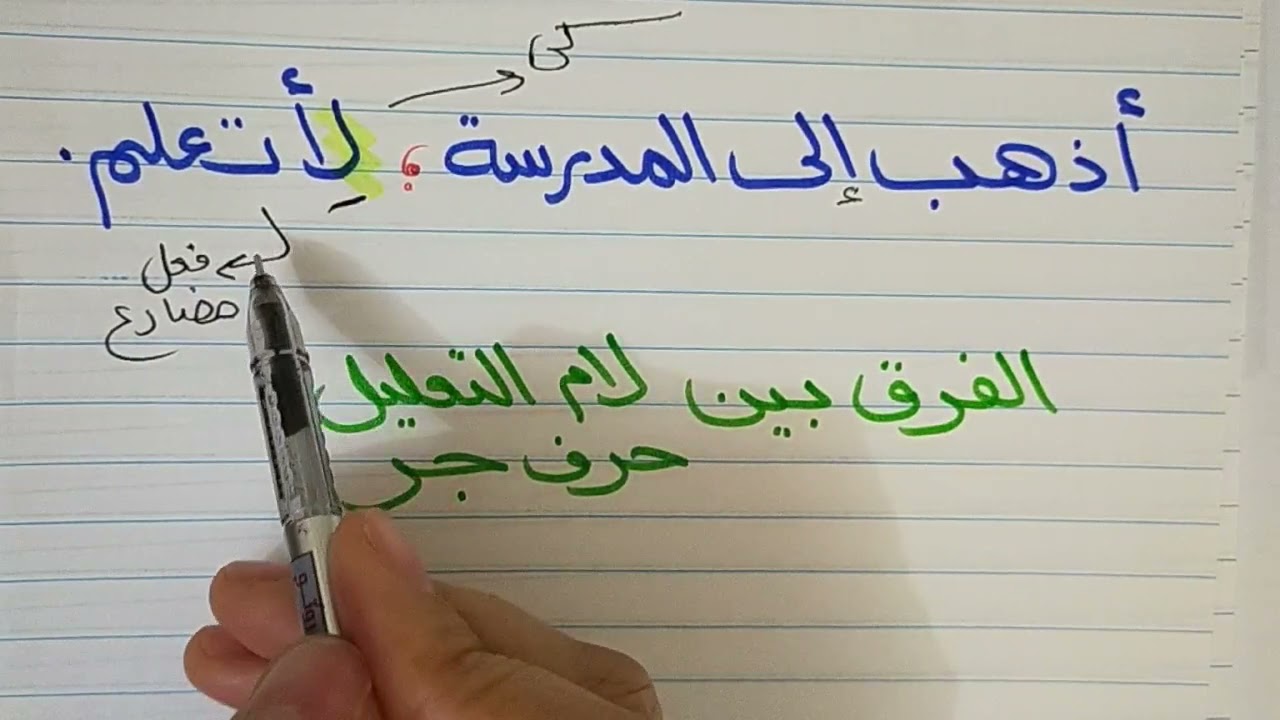 كي
أذهب إلى المدرسة ؛ لِأتعلم .
فعل
مضارع
الفرق بين لام التعليل
حرف جر